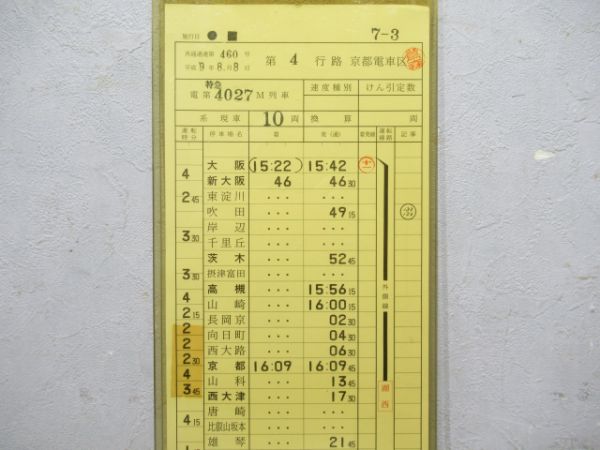 施行日 ● 7-3
外達通達第 460 号
平成 9 年 8.月8日
第 4 行路 京都電車区
特急
電第 4027 M列車 速度種別 けん引定数
系 現車 10 両 換算 両
運転時分 停車場名 着 発(通) 着発線 運転線路 記事
大阪 15:22 15:42 十一
4
新大阪 46 46 30
東淀川 ... ...
2 45
吹田 ... 49 15
岸辺 ... ...
3 30
千里丘 ... ...
茨木 ... 52 45
3 30
摂津富田 ... ...
高槻 ... 15:56 15
4
山崎 ... 16:00 15
外側線
2 15
長岡京 ... 02 30
2
向日町 ... 04 30
2
西大路 ... 06 30
2 30
京都 16:09 16:09 45
4
山科 ... 13 45
湖西
3 45
西大津 ... 17 30
唐崎 ... ...
4 15
比叡山坂本 ... ...
雄琴 ... 21 45